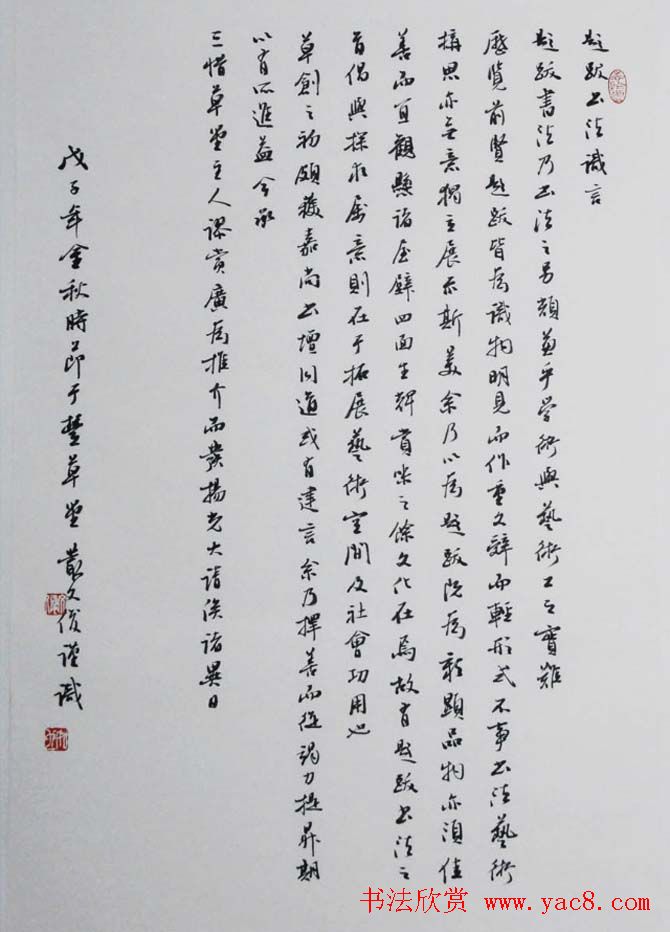 题跋书法识言
题跋书法乃书法之另类兼乎学術與藝術工之實難
歷覽前賢题跋皆為識物明見而作重文辭而輕形式不事书法藝術
構思亦無意獨立展示斯美余乃以為题跋既為彰顯品物亦须佳
善而可觀懸诸屋壁四面生輝賞咏之餘文化在焉故有题跋书法之
首倡與探求属意則在于拓展藝術空間及社會功用也
草創之初頗獲嘉尚书壇同道或有建言余乃擇善而從竭力提昇期
以有所進益今承
三惜草堂主人謬赏廣為推介而發揚光大请俟诸異日
戊子年金秋時節于豐草堂叢文俊谨識
书法欣赏 www.yac8.com